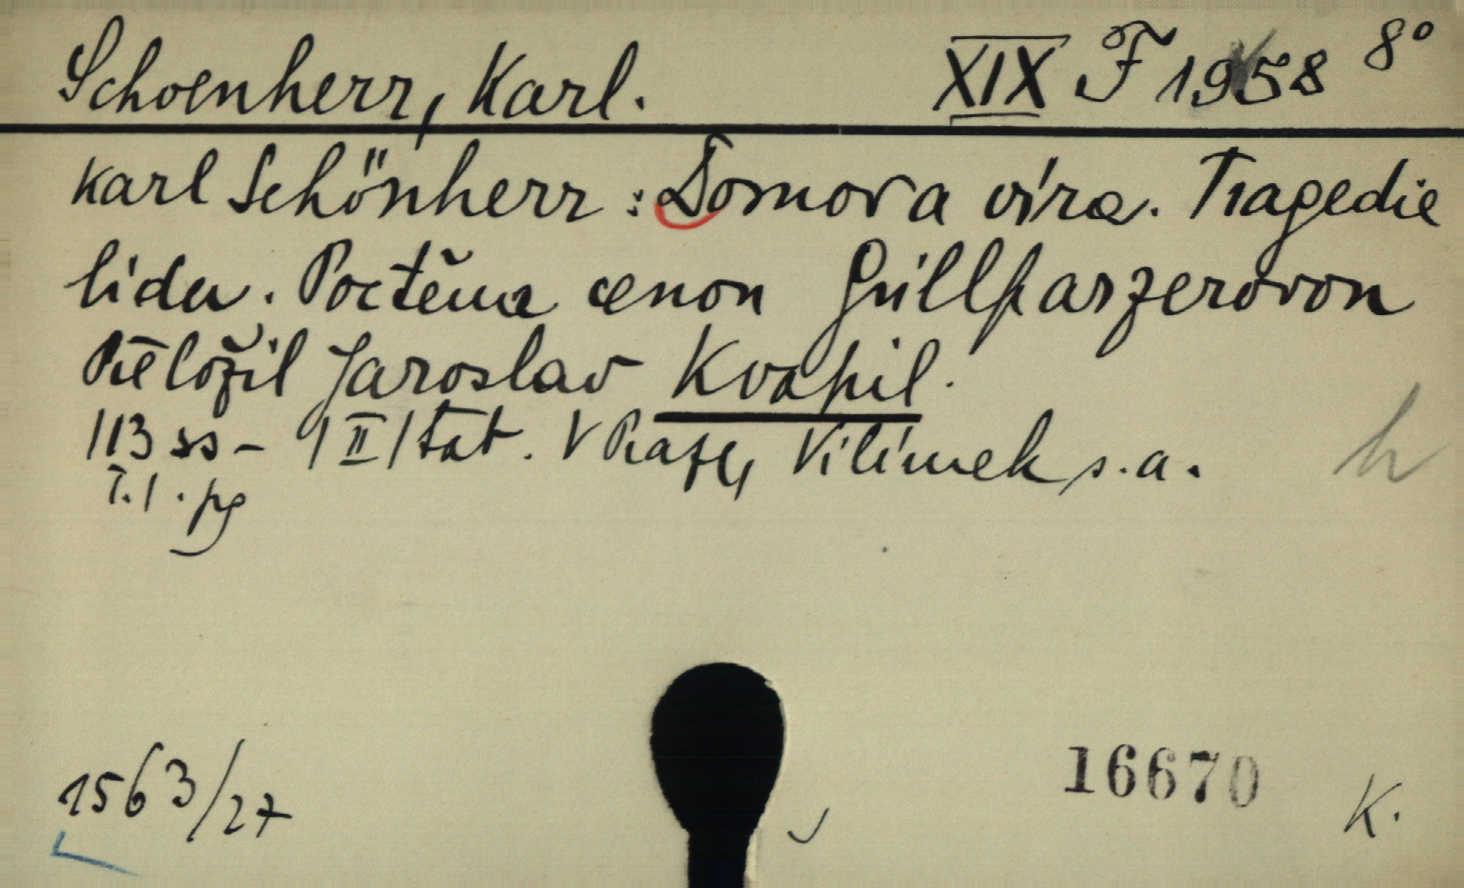 Schoenherr, Karl. XIX F 1958 8°
Karl Schönherr: Domov a víra. Tragedie
lidu. Poctěna cenou Grillparzerovou
Přeložil Jaroslav Kvapil.
113 ss - /II/ tab. V Praze, Vilímek s.a.
T.1. pg
h
1563/27
16670
K.